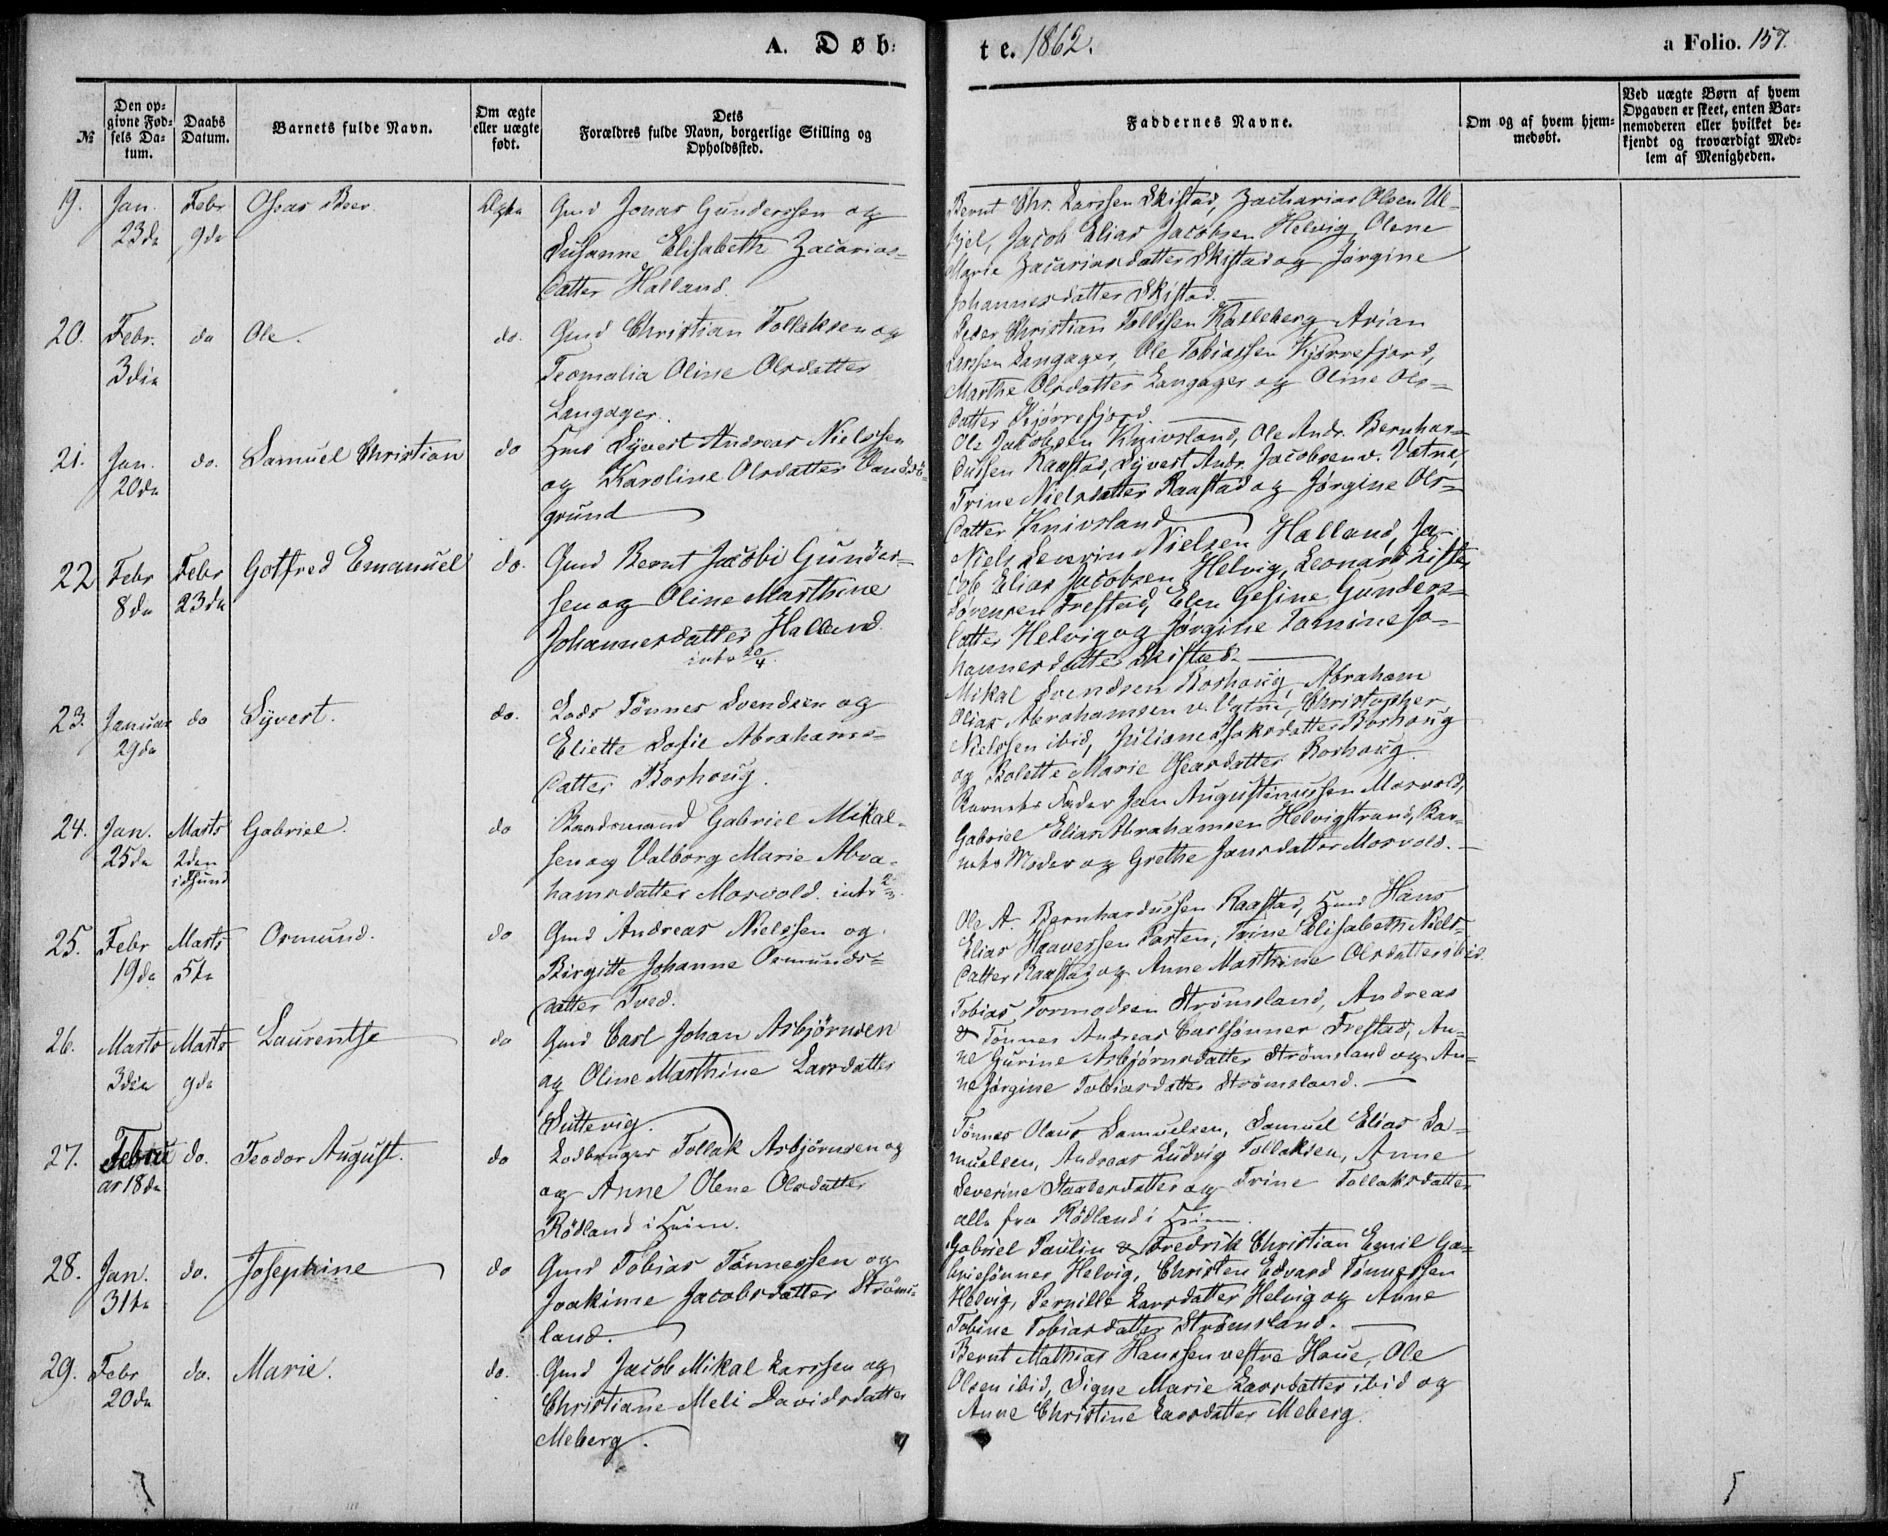 A. Døb:
te. 1862.
a Folio. 157.
№
Den op-
givne Fød-
sels Da-
tum.
Daabs
Datum.
Barnets fulde Navn.
Om ægte
eller uægte
født.
Dets
Forældres fulde Navn, borgerlige Stilling og
Opholdssted.
Faddernes Navne.
Om og af hvem hjem-
medøbt.
Ved uægte Børn af hvem
Opgaven er skeet, enten Bar-
nemoderen eller hvilket be-
kjendt og troværdigt Med-
lem af Menigheden.
19. Jan. Febr Oseas Beer. Ægte Gmd Jonas Gunderssen og
23de 9de Susanne Elisabeth Zacarias-
datter Halland.
Bernt Chr. Larssen Skistad, Zacharias Olsen Ul-
Jacob Elias Jacobsen Helvig, Olene
Marie Zacariasdatter Skistad og Jørgine
Johannesdatter Skistad.
20. Febr. do Ole. do. Gmd Christian Tollaksen og
3die Teomalia Oline Olsdatter
Langager.
Peder Christian Tollissen Kalleberg, Arian
Larssen Langager, Ole Tobiassen Kjørrefjord,
Marthe Olsdatter Langager og Oline Ols-
datter Kjørrefjord.
21. Jan. do. Samuel Christian do Huus Syvert Andreas Nielssen
20de og Karoline Olsdatter
grund
Ole Jakobsen Knivsland, Ole Andr. Bernhar-
dussen Raastad, Syvert Andr. Jacobsen v. Vatne,
Trine Nielsdatter Raastad og Jørgine Ols-
datter Knivsland
22 Febr Febr Gotfred Emanuel do. Gmd Bernt Jacobi Gunder-
8de 23de sen og Oline Marthine
Johannesdatter Halland
intr 20/4.
Niels Severin Nielsen Halland, Ja-
cob Elias Jacobsen Helvig, Leonard Lister
Sørensen Frestad, Elen Gesine Gunders-
datter Helvig og Jørgine Tomine Jo-
hannesdatter Skistad.
23. Januar do Syvert. do. Lods Tønnes Svendsen og
29de Eliette Sofie Abrahams-
datter Borhoug.
Mikal Svendsen Borhoug, Abraham
Olias Abrahamsen v. Vatne, Christopher
Nielssen ibid, Juliane Isaksdatter Borhoug
og Bolette Marie Oseasdatter Borhoug
24. Jan. Marts Gabriel. do Baadsmand Gabriel Mikal-
25de 2den sen og Valborg Marie Abra-
i Hjund hamsdatter Morvold. intr 2/3.
Barnets Fader Jan Augustinussen Morvold,
Gabriel Elias Abrahamsen Helvigstrand, Bar-
nets Moder og Grethe Jansdatter Morvold.
25. Febr Marts Ormund. do Gmd Andreas Nielssen og
19de 5te Birgitte Johanne Ormunds-
datter Tved.
Ole A. Bernhardussen Raastad, Huus Hans
Elias Haaversen Parten, Trine Elisabeth Niels-
datter Raastad og Anne Marthine Olsdatter ibid.
26. Marts Marts Laurentse do Gmd Carl Johan Asbjørnsen
3die 9de og Oline Marthine Larsdatter
Duttevig.
Tobias Tormodsen Strømsland, Andreas
& Tønnes Andreas Carlsønner Frestad, An-
ne Gurine Asbjørnsdatter Strømsland og An-
ne Jørgine Tobiasdatter Strømsland.
27. Febru do. Teodor August. do Lodbruger Tollak Asbjørnsen og
ar 18de og Anne Olene Olsdatter
Rødland i Heim.
Tønnes Olaus Samuelsen, Samuel Elias Sa-
muelsen, Andreas Ludvig Tollaksen, Anne
Severine Staalesdatter og Trine Tollaksdatter
alle fra Rødland i Heim.
28. Jan. do. Josephine do Gmd Tobias Tønnessen og
31te Joakime Jacobsdatter Strøms-
land.
Gabriel Paulin & Fredrik Christian Emil Ga-
brielsønner Helvig, Christen Edvard Tønnessen
Helvig, Pernille Larsdatter Helvig og Anne
Tobine Tobiasdatter Strømsland.
29. Febr do. Marie. do. Gmd Jacob Mikal Larssen og
20de Christiane Meli Davidsdatter
Meberg.
Bernt Mathias Hanssen vestre Haue, Ole
Olsen ibid, Signe Marie Larsdatter ibid og
Anne Christine Larsdatter Meberg.